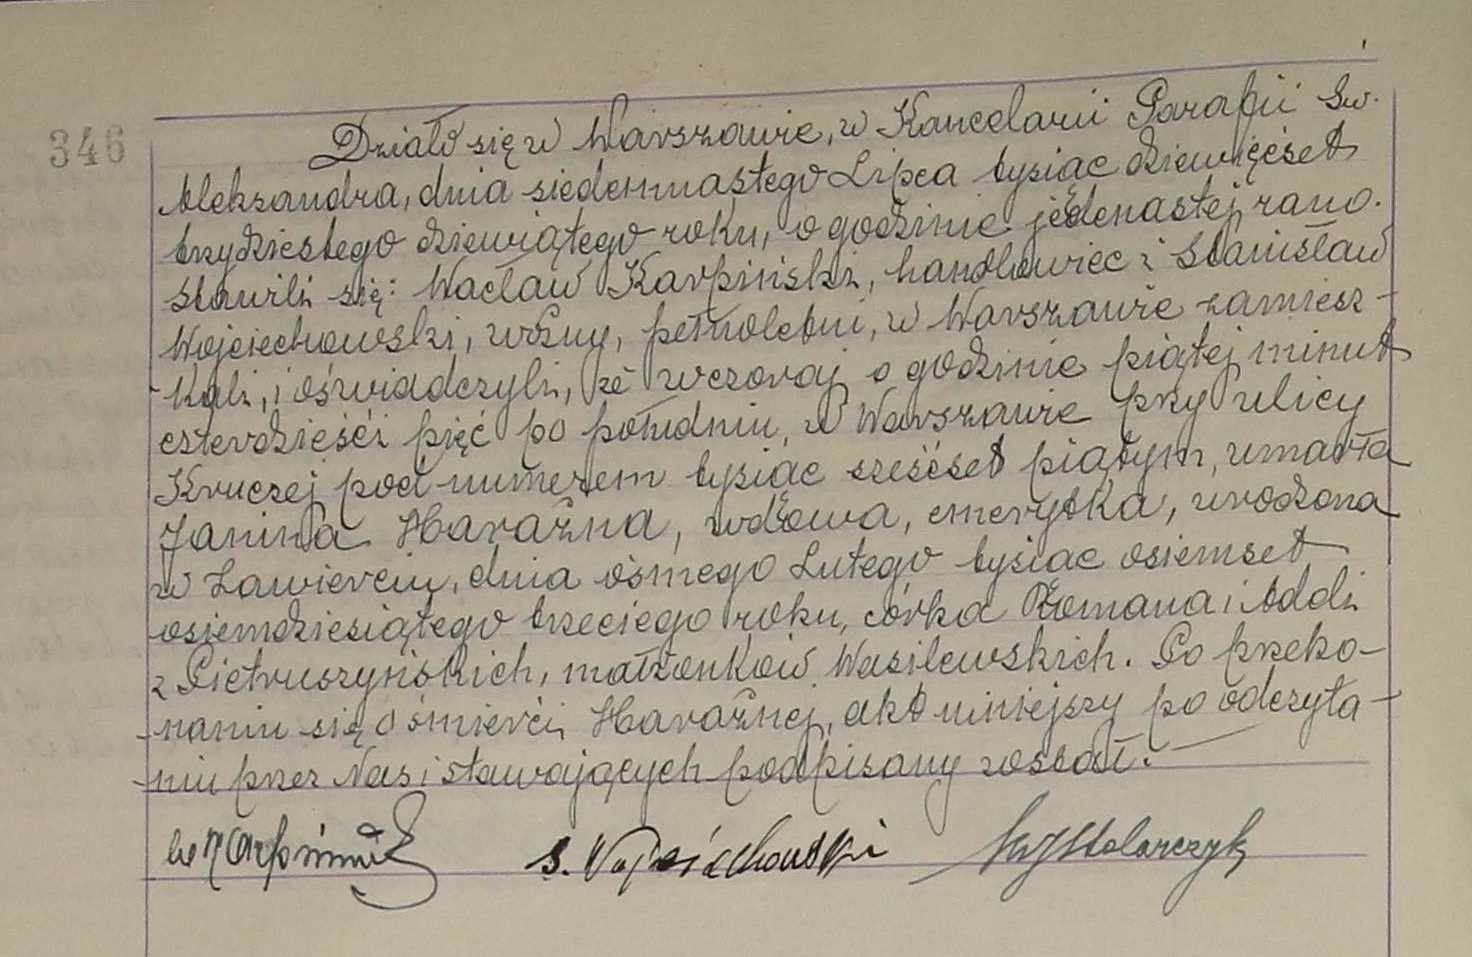 346
Działo się w Warszawie, w Kancelarii Parafii Św.
Aleksandra, dnia siedemnastego Lipca tysiąc dziewięćset
trzydziestego dziewiątego roku, o godzinie jedenastej rano.
Stawili się: Wacław Karpiński, handlowiec i Stanisław
Wojciechowski, woźny, pełnoletni, w Warszawie zamiesz-
-kali, i oświadczyli, że wczoraj o godzinie piątej minut
czterdzieści pięć po południu, w Warszawie przy ulicy
Kruczej pod numerem tysiąc sześćset piątym, umarła
Janina Haraźna, wdowa, emerytka, urodzona
w Zawierciu, dnia ósmego Lutego tysiąc osiemset
osiemdziesiątego trzeciego roku, córka Romana i Adeli
z Pietruszyńskich, małżonków Wasilewskich. Po przeko-
-naniu się o śmierci Haraźnej, akt niniejszy po odczyta-
-niu przez Nas i stawających podpisany został.
W Karpiński S. Wojciechowski Stolarczyk